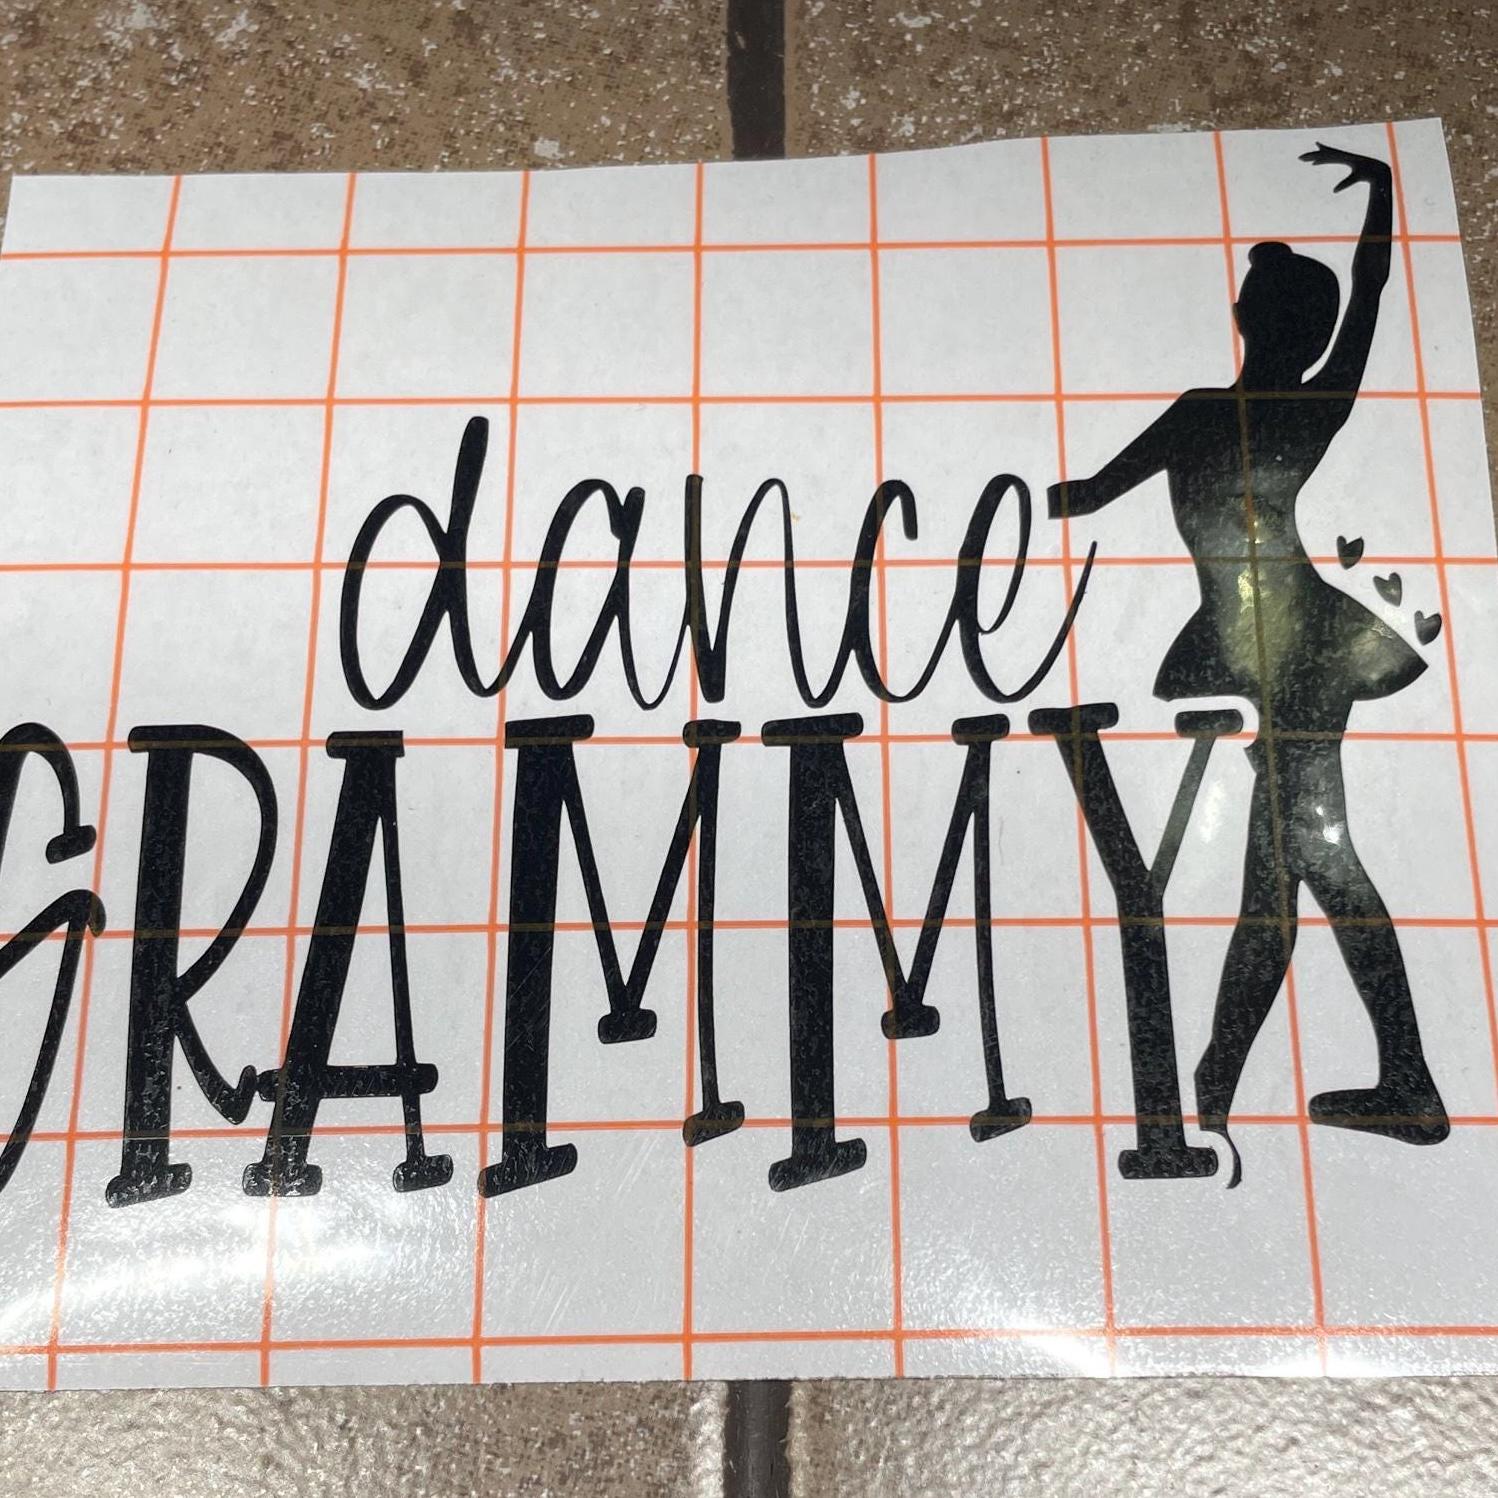 dance
GRAMMY